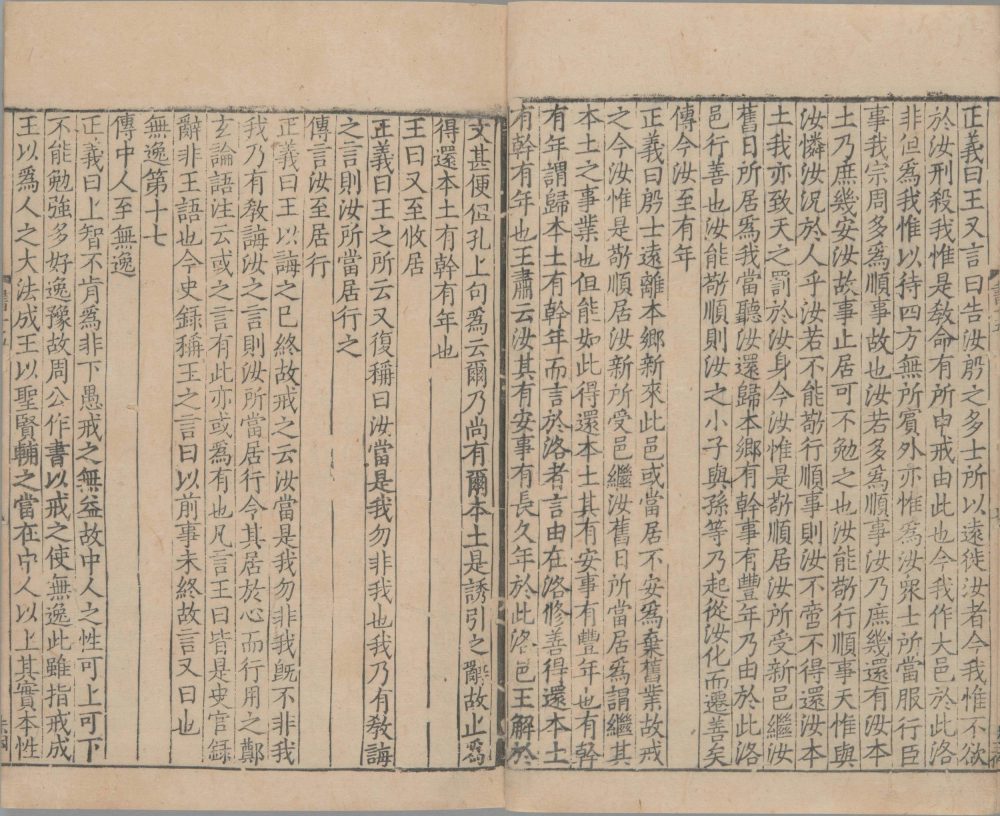 正義曰王又言曰告汝殷之多士所以遠徙汝者今我惟不欲
於汝刑殺我惟是敎命有所申戒由此也今我作大邑於此洛
非但爲我惟以待四方無所賓外亦惟爲汝衆士所當服行臣
事我宗周多爲順事故也汝若多爲順事汝乃庶幾還有汝本
土乃庶幾安汝故事止居可不勉之也汝能敬行順事天惟與
汝憐汝況於人乎汝若不能敬行順事則汝不啻不得還汝本
土我亦致天之罰於汝身今汝惟是敬順居汝所受新邑繼汝
舊日所居爲我當聽汝還歸本鄉有幹事有豐年乃由於此洛
邑行善也汝能敬順則汝之小子與孫等乃起從汝化而遷善矣
傳今汝至有年
正義曰殷士遠離本鄉新來此邑或當居不安爲棄舊業故戒
之今汝惟是敬順居汝新所受邑繼汝舊日所當居爲謂繼其
本土之事業也但能如此得還本土其有安事有豐年也有幹
有年謂歸本土有幹年而言於洛者言由在洛修善得還本土
有幹有年也王肅云汝其有安事有長久年於此洛邑王解於
文甚便但孔上句爲云爾乃尚有爾本土是誘引之辭故止爲
得還本土有幹有年也
王曰又至攸居
正義曰王之所云又復稱曰汝當是我勿非我也我乃有敎誨
之言則汝所當居行之
傳言汝至居行
正義曰王以誨之已終故戒之云汝當是我勿非我旣不非我
我乃有敎誨汝之言則汝所當居行令其居於心而行用之鄭
玄論語注云或之言有此亦或爲有也凡言王曰皆是史官錄
辭非王語也今史錄稱王之言曰以前事未終故言又曰也
無逸第十七
傳中人至無逸
正義曰上智不肯爲非下愚戒之無益故中人之性可上可下
不能勉強多好逸豫故周公作書以戒之使無逸此雖指戒成
王以爲人之大法成王以聖賢輔之當在中人以上其實本性